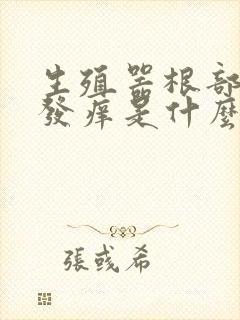 生殖器根部
發痒是什麼
張彧希